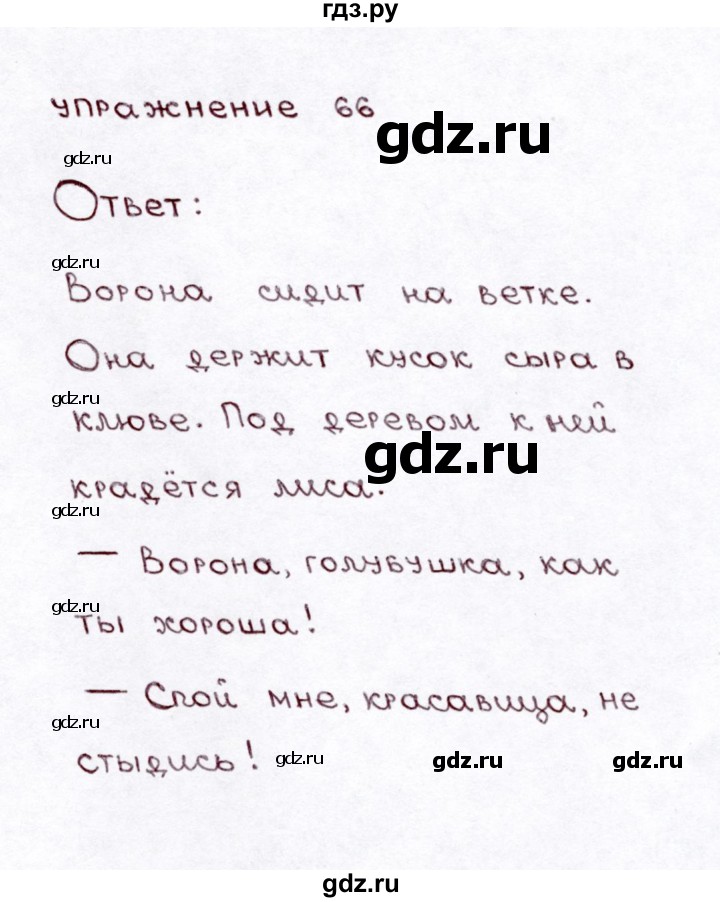 гдз.ру
упражнение 66
gdz.ru
gdz.ru
Ответ:
gdz.ru
Ворона сидит на ветке.
Она держит кусок сыра в
gdz.ru
клюве. Под деревом к ней
gdz.ru
крадётся лиса.
gdz.ru
— Ворона, голубушка, как
gdz.ru
ты хороша!
— Спой мне, красавица, не
gdz.ru
стыдись!
gdz.ru gdz.ru gdz.ru
gdz.ru